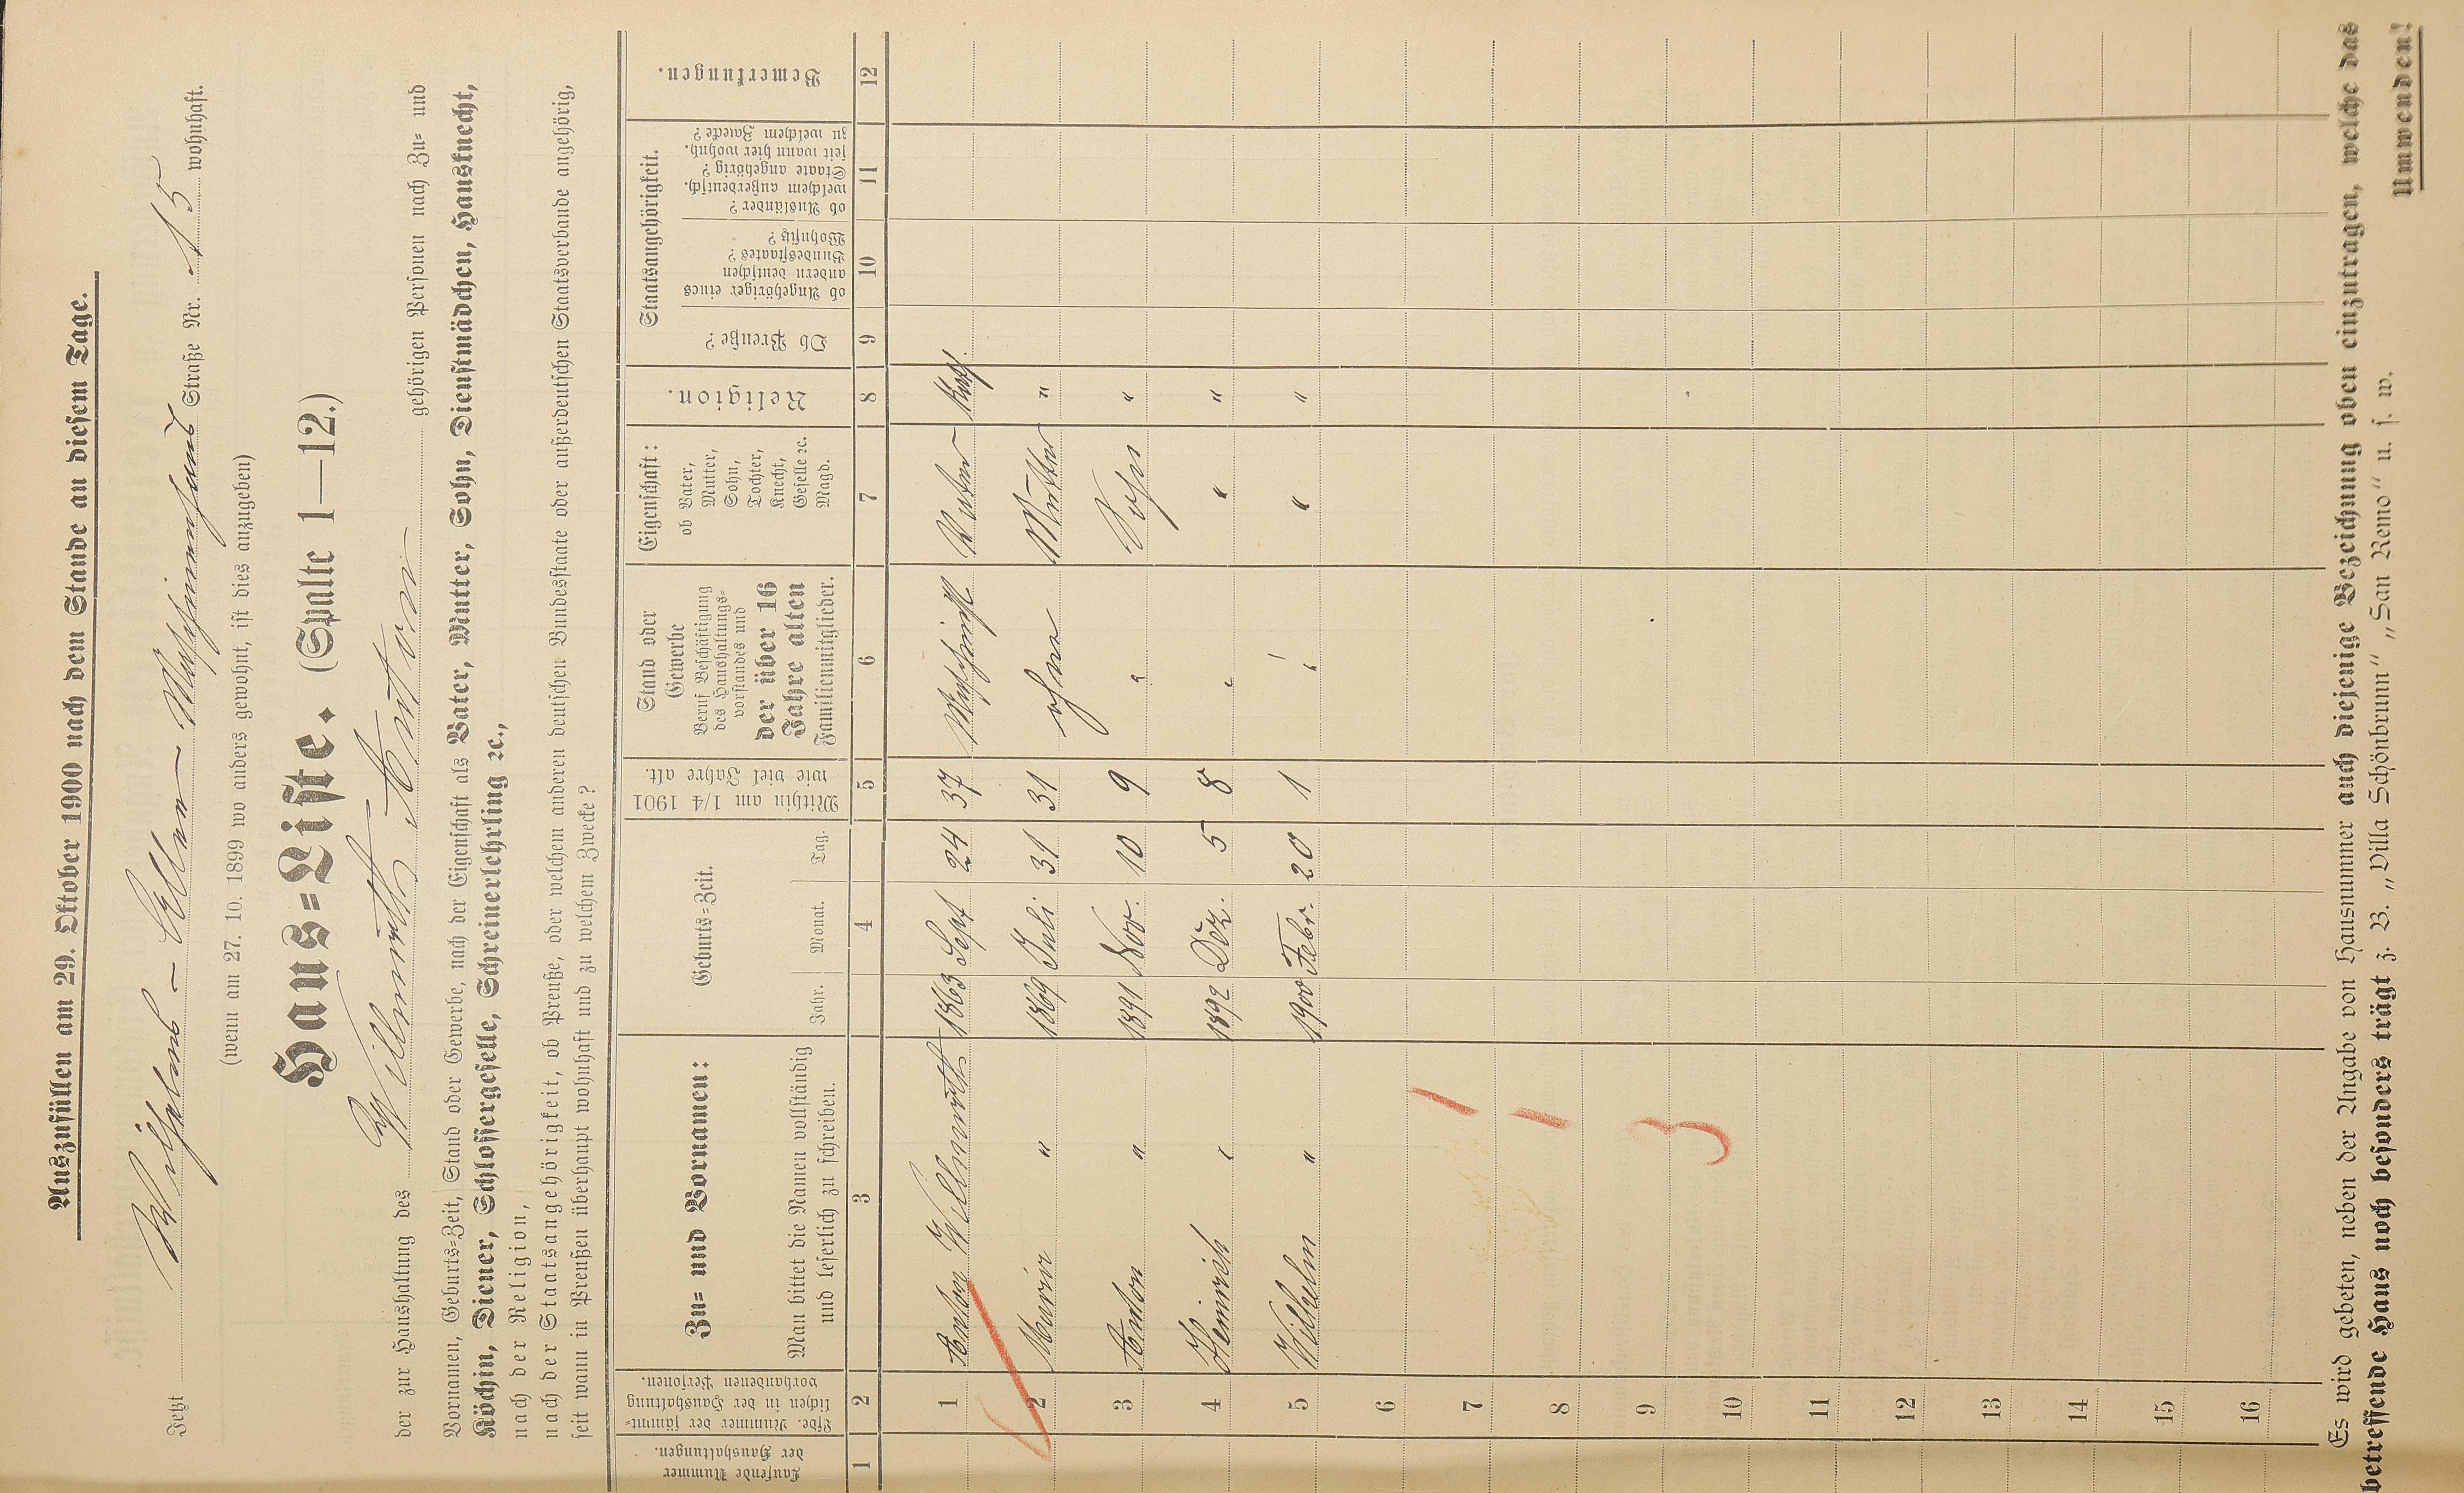 Auszufüllen am 29. Oktober 1900 nach dem Stande an diesem Tage.
Jetzt Wilhelms-Allee - Maschinenhaus Straße Nr. 15 wohnhaft.
(wenn am 27. 10. 1899 wo anders gewohnt, ist dies anzugeben)
Haus=Liste. (Spalte 1—12.)
der zur Haushaltung des Willmuth Anton gehörigen Personen nach Zu= und
Vornamen, Geburts=Zeit, Stand oder Gewerbe, nach der Eigenschaft als Vater, Mutter, Sohn, Dienstmädchen, Hausknecht,
Köchin, Diener, Schlossergeselle, Schreinerlehrling ꝛc.,
nach der Religion,
nach der Staatsangehörigkeit, ob Preuße, oder welchem anderen deutschen Bundesstaate oder außerdeutschen Staatsverbande angehörig,
seit wann in Preußen überhaupt wohnhaft und zu welchem Zwecke?
Laufende Nummer
der Haushaltungen.
Lfde. Nummer der sämmt=
lichen in der Haushaltung
vorhandenen Personen.
Zu= und Vornamen:
Man bittet die Namen vollständig
und leserlich zu schreiben.
Geburts=Zeit.
Jahr. Monat. Tag.
Mithin am 1/4 1901
wie viel Jahre alt.
Stand oder
Gewerbe
Beruf Beschäftigung
des Haushaltungs=
vorstandes und
der über 16
Jahre alten
Familienmitglieder.
Eigenschaft:
ob Vater,
Mutter,
Sohn,
Tochter,
Knecht,
Geselle ꝛc.
Magd.
Religion.
Staatsangehörigkeit.
Ob Preuße?
ob Angehöriger eines
andern deutschen
Bundesstaates?
Wohnsitz?
ob Ausländer?
welchem außerdeutsch.
Staate angehörig?
seit wann hier wohnh.
zu welchem Zwecke?
Bemerkungen.
1 2 3 4 5 6 7 8 9 10 11 12
1 Anton Willmuth 1863 Sept 24 37 Maschinist Vater Kath.
2 Maria " 1869 Juli 31 31 ohne Mutter "
3 Anton " 1891 Nov. 10 9 " Sohn "
4 Heinrich " 1892 Dez. 5 8 " " "
5 Wilhelm " 1900 Febr. 20 1 " " "
6
7
8
9
10
11
12
13
14
15
16
1
1
3
Es wird gebeten, neben der Angabe von Hausnummer auch diejenige Bezeichnung oben einzutragen, welche das
betreffende Haus noch besonders trägt z. B. „Villa Schönbrunn" „San Remo" u. s. w.
Umwenden!